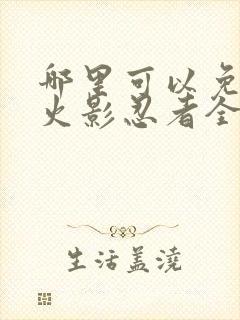 哪里可以免
火影忍者全
生活盖浇